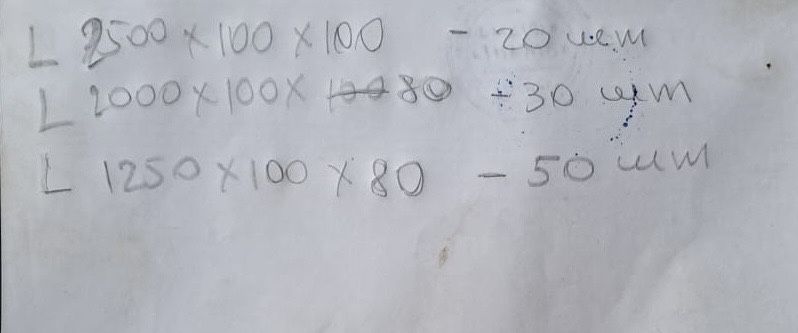 L 2500 x 100 x 100 - 20 шт
L 2000 x 100 x 80 - 30 шт
L 1250 x 100 x 80 - 50 шт